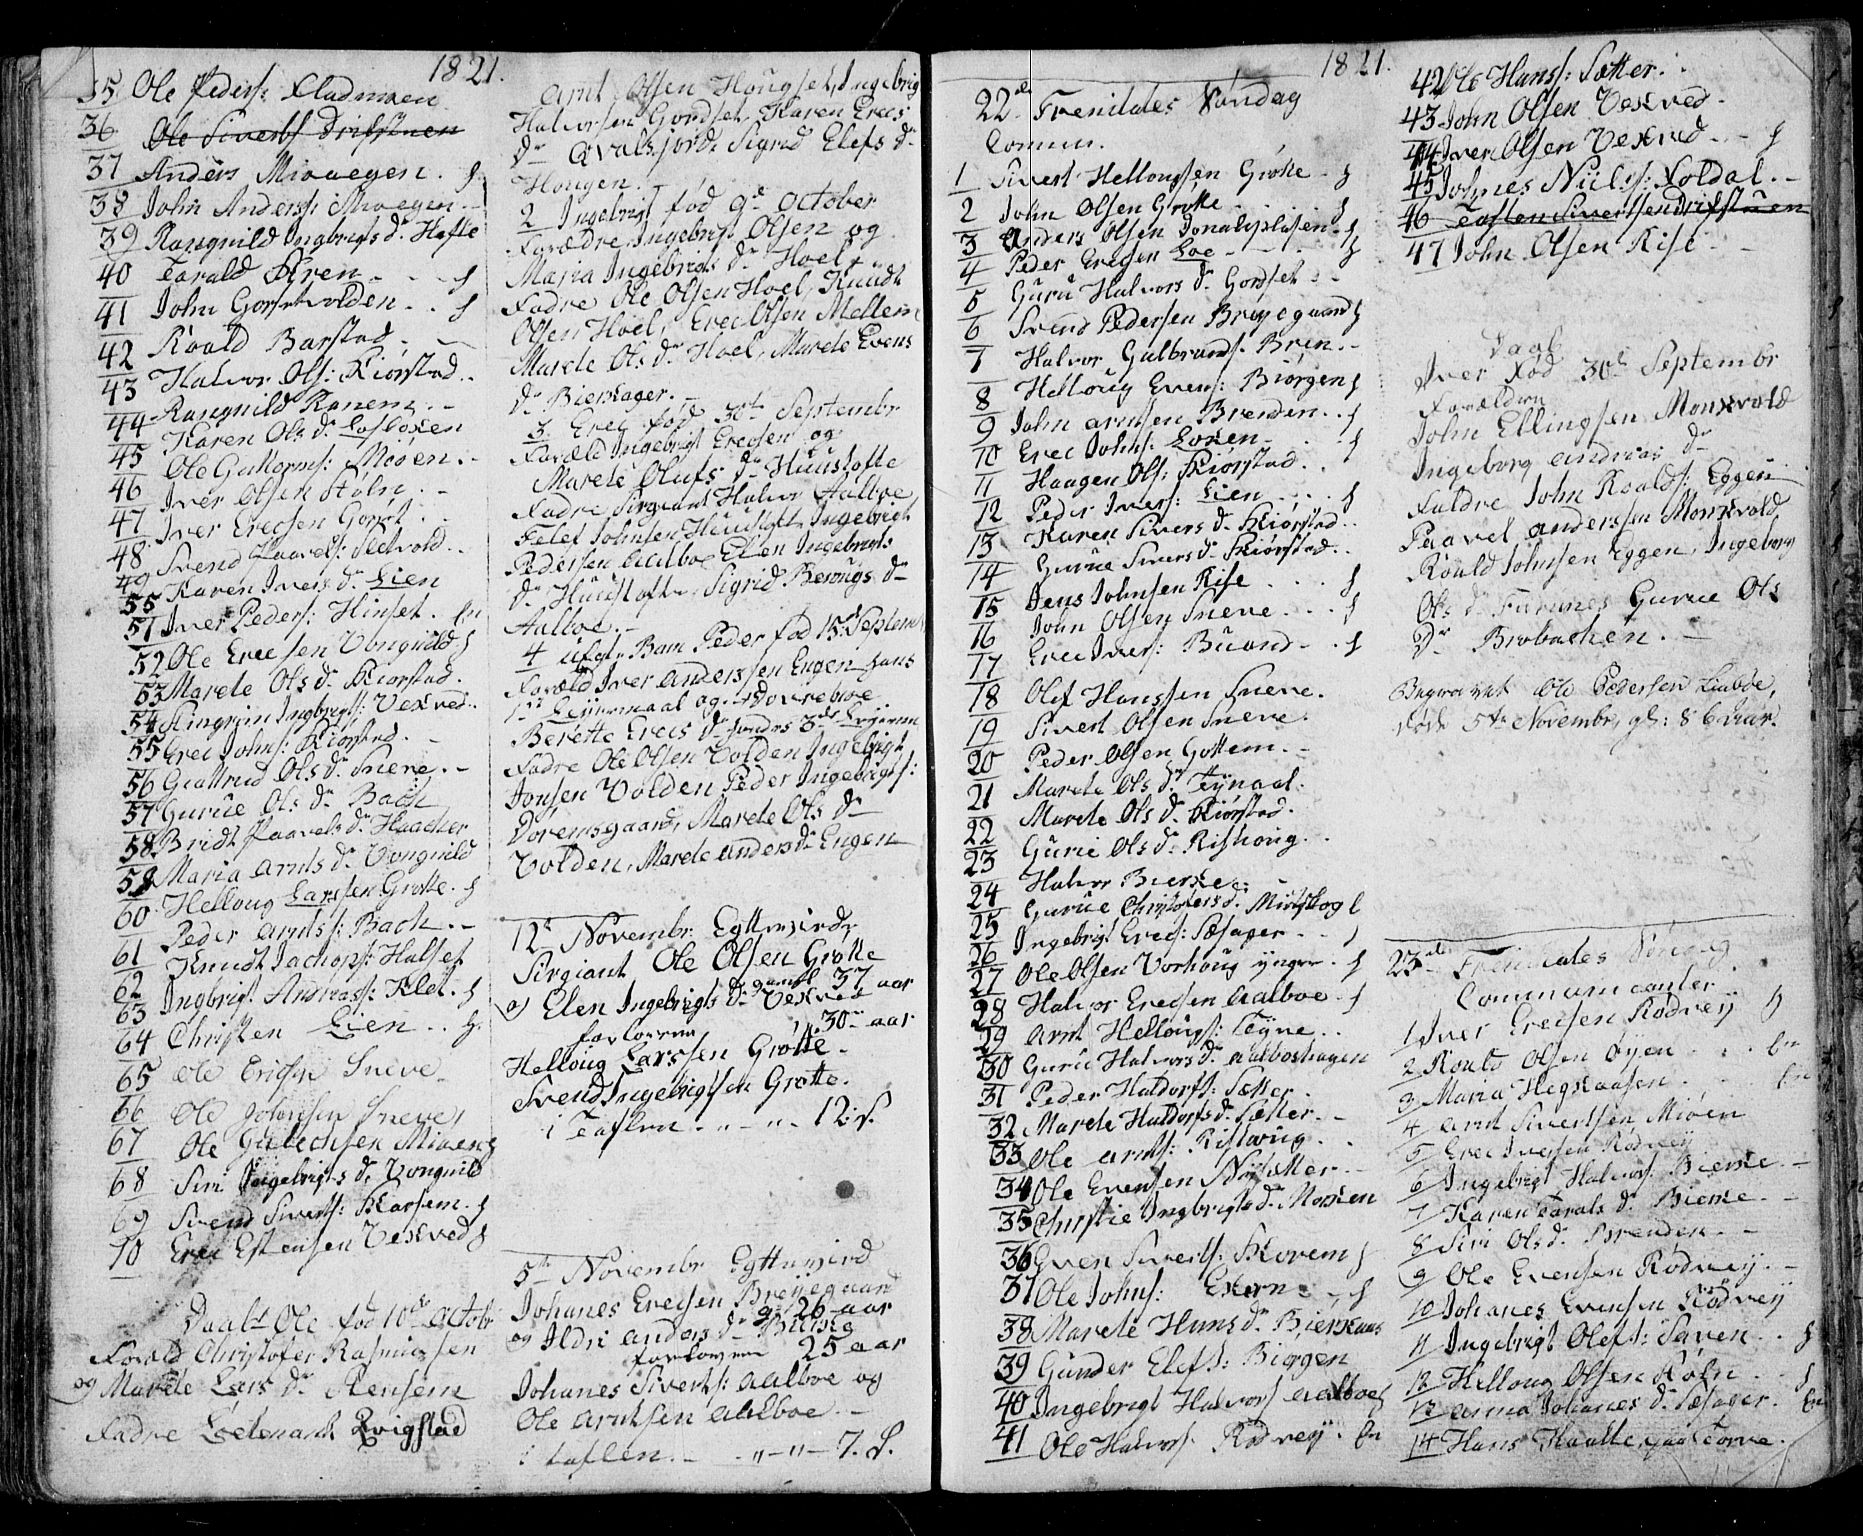 1821.
35 Ole Peders: Kladmoen
36 Ole Siverts: Drifstuen
37 Anders Mioaegen. f
38 John Anderss: Mioegen -
39 Rangnild Ingbrigts dr Hofte
40 Tarald Kren - . - f
41 John Gorsetvolden - . f
42 Roald Barstad - -
43 Halvor Ols: Kiorstad ..
44 Rangnild Ranem . -
45 Karen Ols dr Losloxen
46 Ole Guttorms: Mioen . -
47 Iver Olsen Stoln . -
48 Iver Erecsen Gorset . .
49 Svend Paavels: Sletvold . .
55 Karen Ivers dr Lien
51 Iver Peders: Hinset . En
52 Ole Erecsen Vongnild f
53 Marete Ols dr Kiorstad .
54 Ingbrigts: Vexved ..
55 Erec Johns: Kiorstad . -
56 Giattrud Ols dr Sneve . -
57 Gurue Ols dr Bach
58 Bridt Paavels dr Haacher
59 Maria Arnts dr Vongnild
60 Helloug Larssen Grotte . f
61 Peder Arnts: Bach . -
62 Knudt Jachops: Halset
63 Ingbrigt Andreas: Klet . f
64 Christen Lien . . f
65 Ole Ericsen Sneve
66 Ole Johnsen Sneve,
67 Ole Gulichsen Mioen f
68 Siri Ingebrigts dr Vongnild
69 Svend Siverts: Klarsem . f
70 Erec Estensen Vexved f
Daabt Ole fød 10de Octobr
Foræld Christofer Rasmussen
og Marete Lars dr Rensem
Fadre Løitenant Qvigstad
Arnt Olsen Hougset, Ingebrig
Halvorsen Gorsdset, Karen Erecs
dr Qvalsfjord Sigrid Elefs dr
Hougen. -
2 Ingebrigt fød 9de October
Forældre Ingebrigt Olsen og
Maria Ingebrigts dr Hoel
Fadre Ole Olsen Hoel, Knudt
Olsen Hoel, Erec Olsen Mellem
Marete Ols dr Hoel, Marete Evens
dr Bierkager. -
3 Erec fød 30te Septembr
Foræld Ingebrigt Erecsen og
Marete Olufs dr Huustofte
Fadre Sirgeant Halvor Aalboe,
Eelef Johnsen Huustoft Ingebrigt
Pedersen Aalboe Elen Ingebrigts
dr Huustofte, Sigrid Berougs dr
Aalboe. -
4 Uægt. Barn Peder fød 15de Septem
Foræld Iver Anderssen Engen hans
1te Leiermaal og
Berette Erecs dr hendes 3de Leijerm
Fadre Ole Olsen Volden Ingebrigt
Jonsen Volden Peder Ingebrigts:
Doremsgaard, Marete Ols dr
Volden, Marete Anders dr Engen
12te Novembr. Egttevirde
Sirgiant Ole Olsen Grotte
gaml 37 aar
og Elen Ingebrigts dr Vexved
30 aar
forlovern
Helloug Larssen Grotte.
Svend Ingebrigtsen Grotte.
i Taflen . . " - " - 12: s.
5te Novembr Egttevird
Johanes Erecsen Breijegaard
g. 26 aar
og Ildri Anders dr Bierke
forlovern 25 aar
Johanes Siverts: Aalboe og
Ole Arntsen Aalboe -
i taflen . - . " - " - 7. s.
1821.
22de Trenitates Søndag
Comun.
1 Sivert Hellougsen Grøtte - f
2 John Olsen Grøtte . . . . f
3 Anders Olsen Donaliplasen . f
4 Peder Erecsen Loe - - - - f
5 Guru Halvors dr Gorsset . -
6 Svend Pedersen Breijegaard f
7 Halvor Gulbrands: Bren . -
8 Helloug Evens: Biørgen f
9 John Arntsen Brenden . . f
10 Erec Johns: Loxen - . . f
11 Haagen Ols: Kiørstad . .
12 Peder Ivers: Lien . . . . f
13 Karen Sivers dr Kiørstad . .
14 Gurue Sivers dr Kiørstad . .
15 Jens Johnsen Rise . . . f
16 John Olsen Sneve . . . f
17 Erec Ivers: Buand - . . f
18 Olef Hanssen Sneve .
19 Sivert Olsen Sneve .
20 Peder Olsen Gottem . -
21 Marete Ols dr Teijnael .
22 Marete Ols dr Kiørstad .
23 Gurie Ols dr Rishoug . .
24 Halvor Bierke . -
25 Gurue Christofers dr Mitskog
26 Ingebrigt Erecs: Sæsager . . f
27 Ole Olsen Vorhoug ijnger . f
28 Halvor Erecsen Aalboe . f
29 Arnt Hellougs: Teijne . .
30 Guru Halvors dr Aalboshagen
31 Peder Haldors: Sætter .
32 Marete Haldors dr Sætter . -
33 Ole Arnts: Rishoug . .
34 Ole Evensen Nijsætter . -
35 Christie Ingbrigts dr Morken
36 Even Siverts: Klovem f
37 Ole Johns: Ekern - . f
38 Marete Hans dr Bierkaas
39 Gunder Elefs: Biørgen
40 Ingebrigt Halvors Aalboe f
41 Ole Halvors. Rødveij . En
42 Ole Hans: Sætter . .
43 John Olsen Vexved .
44 Iver Olsen Vexved . - f
45 Johnes Niels: Foldal . -
46 Tosten Sivertsen Drifstuen
47 John Olsen Rise -
Daab
Iver Fød 30te Septembr
Forældrn
John Ellingsen Monxvold
Ingeborg Andreas dr
Faldre John Roalds: Eggen
Paavel Anderssen Monxvold
Roald Johnsen Eggen, Ingeborg
Ols dr Furunes Gurue Ols
dr Brobachen. -
Begravet Ole Pedersen Liaboe,
døde 5te Novembr, gl: 86 aar.
23de Trenitates Søndag
Communicanter.
1 Iver Erecsen Rødveij f
2 Roald Olsen Øyen . . En
3 Maria Hegstaasen . . En
4 Arnt Sivertsen Mioen
5 Erec Iversen Rødveij
6 Ingebrigt Halvors: Bierke . -
7 Karen Tarals dr Bierke . -
8 Siri Ols dr Brenden . -
9 Ole Evensen Rødveij . -
10 Johanes Evensen Rødveij
11 Ingebrigt Olefs: Saven . . f
12 Helloug Olsen Stoln . . f
13 Anna Johanes dr Sæsager . En
14 Hans Haalle gaa Torve .